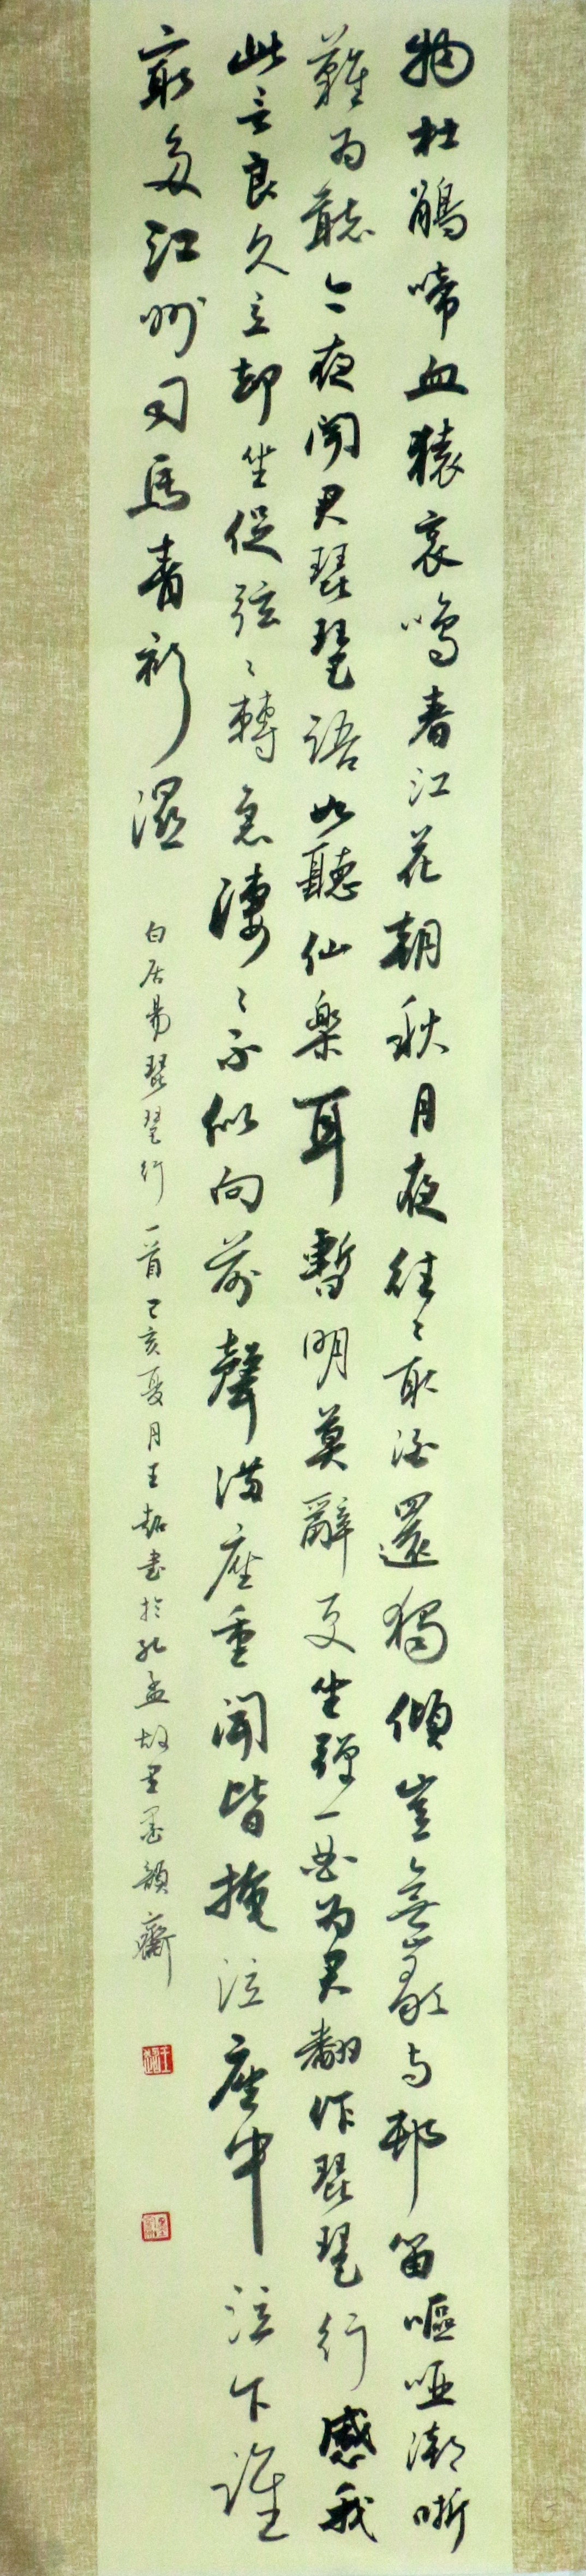 物杜鵑啼血猿哀鳴春江花朝秋月夜往〻取酒還獨傾豈無山歌与村笛嘔啞潮哳
難為聽今夜聞君琵琶語如聽仙樂耳暫明莫辭更坐彈一曲為君翻作琵琶行感我
此言良久立却坐促弦〻轉急淒〻不似向前聲滿座重聞皆掩泣座中泣下誰
最多江州司馬青衫濕
白居易琵琶行一首己亥夏月王超書於孔孟故里墨韻齋